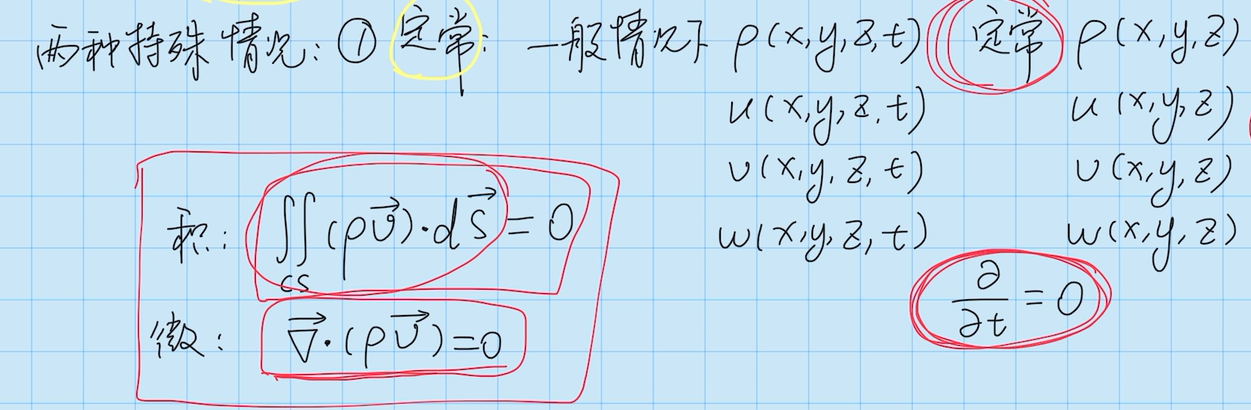 两种特殊情况：① 定常：一般情况下 ρ(x,y,z,t) 定常 ρ(x,y,z)
u(x,y,z,t) u(x,y,z)
v(x,y,z,t) v(x,y,z)
w(x,y,z,t) w(x,y,z)
积：∬_CS (ρv⃗)·dS⃗ = 0
∂/∂t = 0
微：∇⃗·(ρv⃗)=0